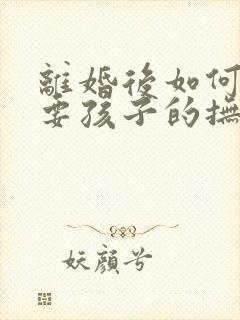 離婚後如何
要孩子的撫
妖顏兮